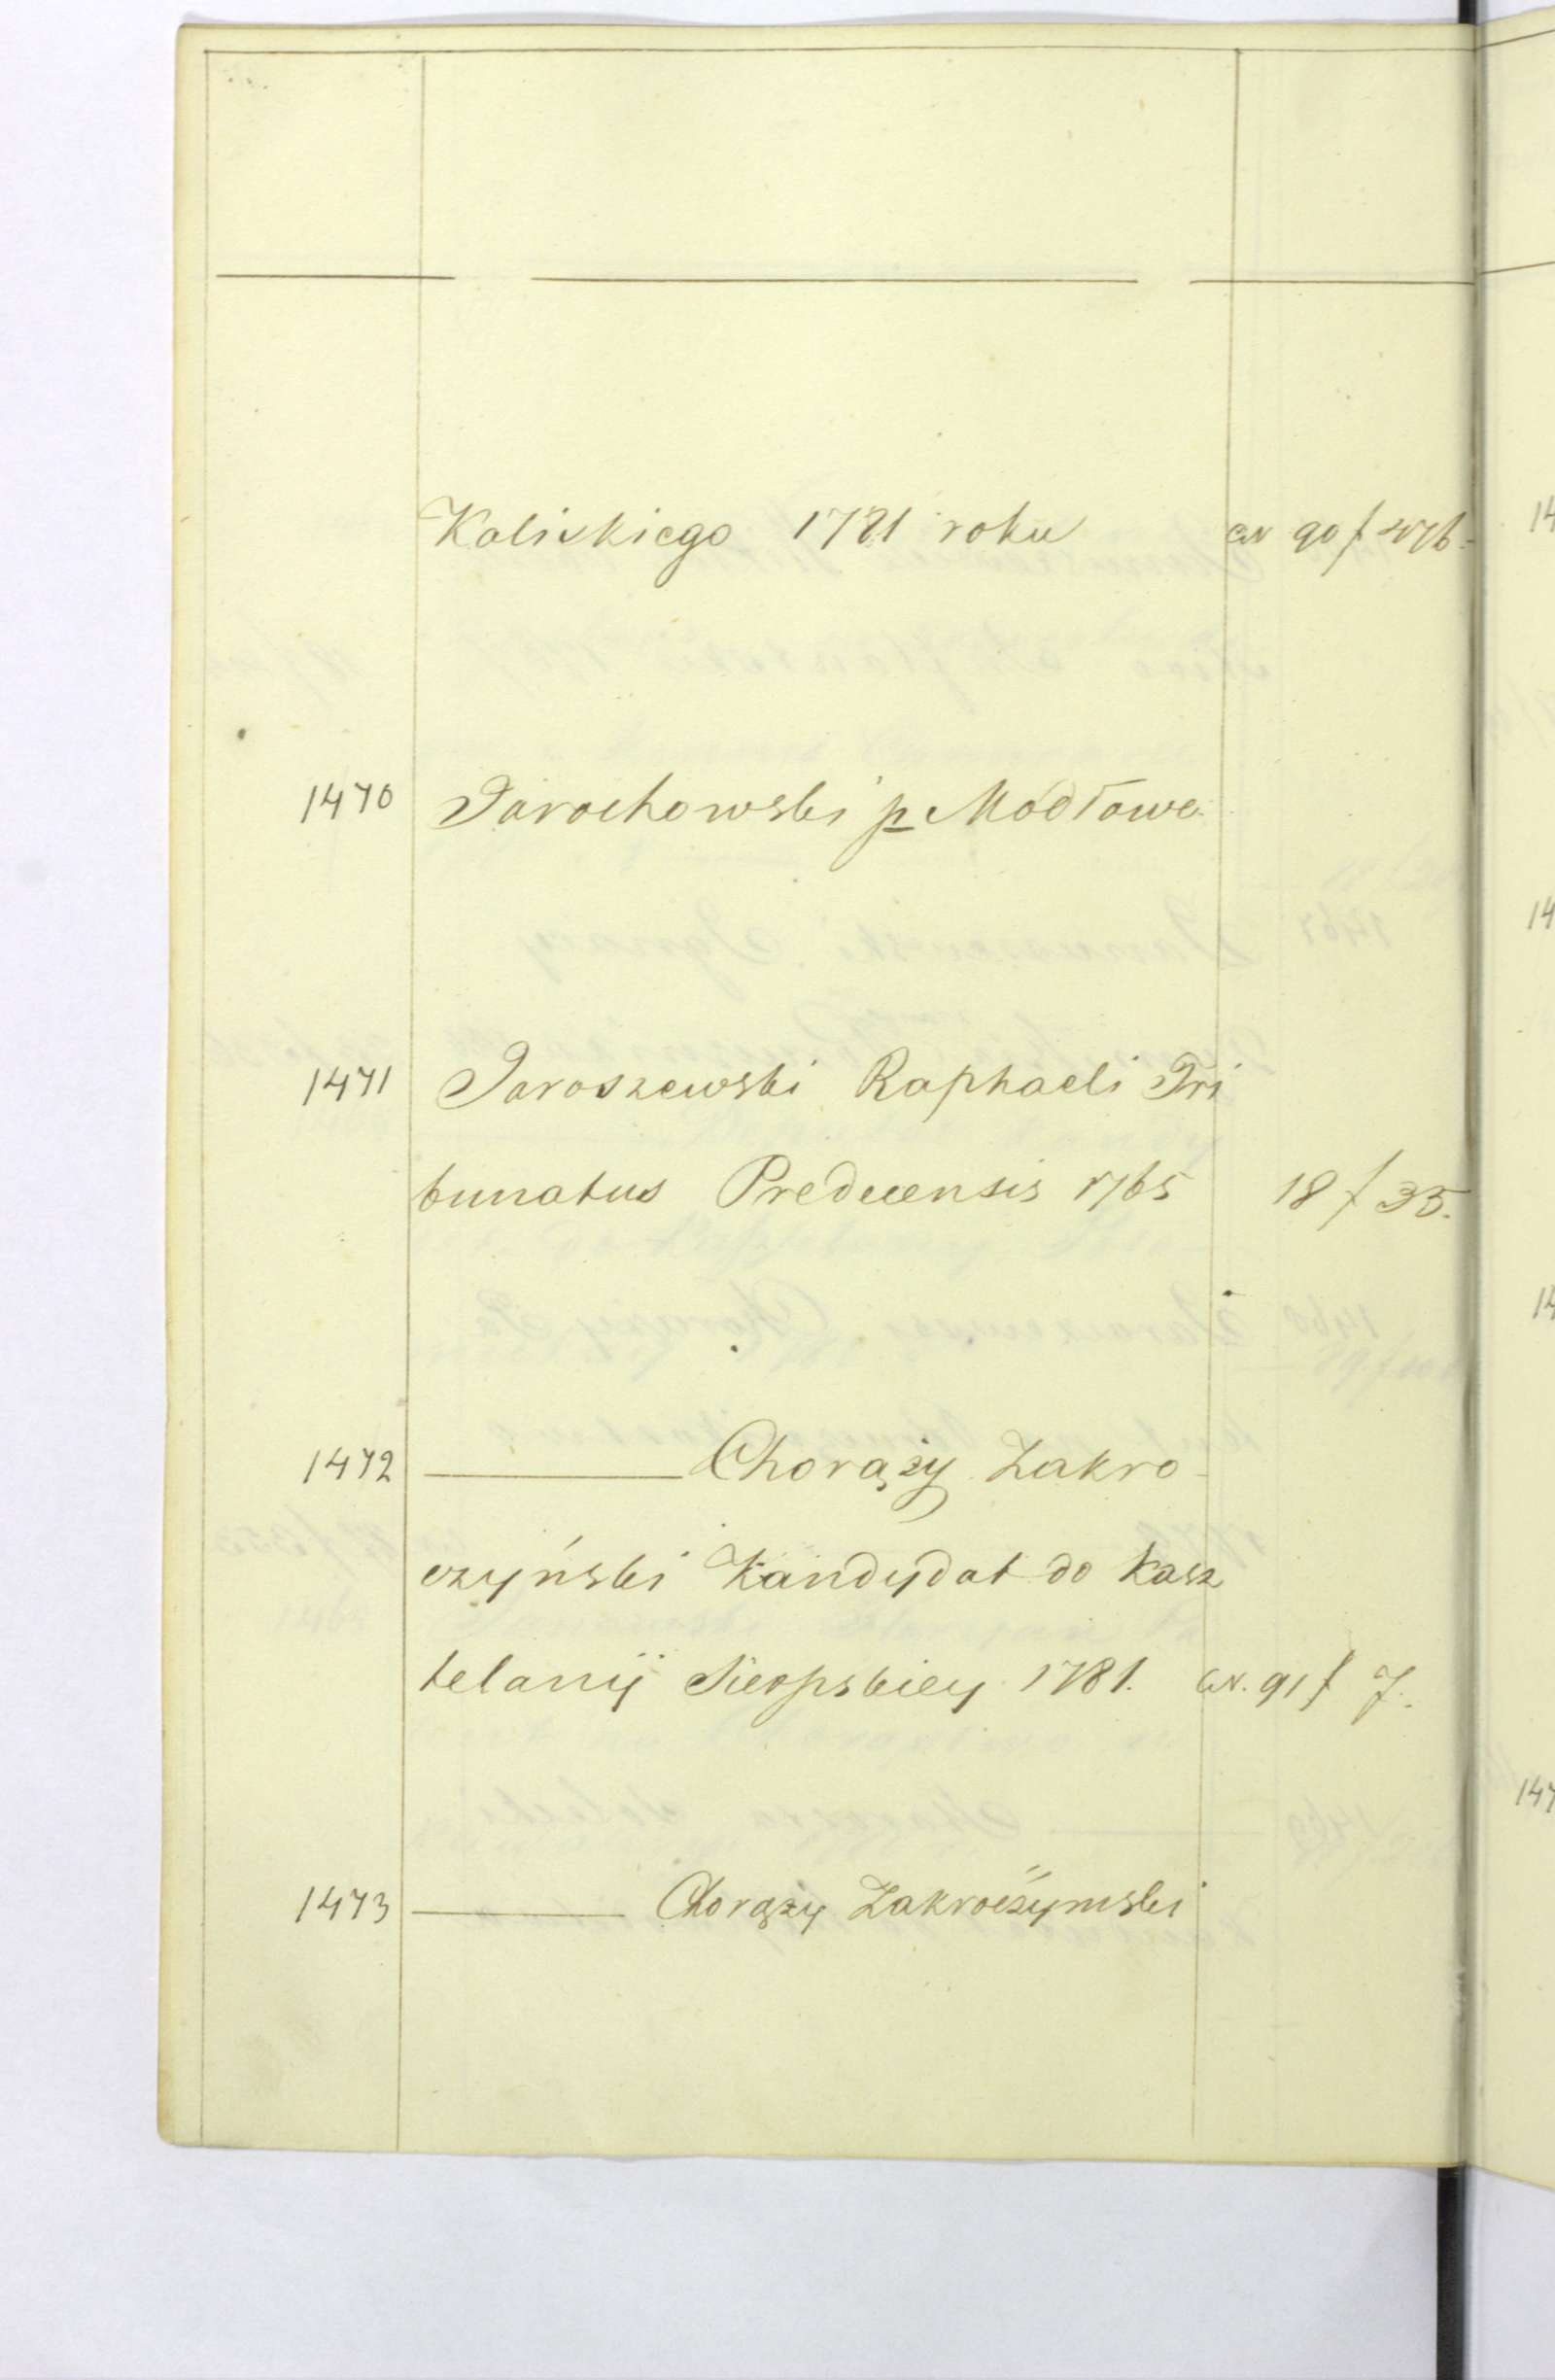 Kaliskiego 1781 roku cν 90 f 476.
1470 Jarochowski p Modłowa
1471 Jaroszewski Raphaeli Tri
bunatus Preducensis 1765 18 f 35.
1472 ——— Chorąży Zakro-
czyński Kandydat do Kasz
telanÿ Sierpskiey 1781. cν. 91 f 7.
1473 ——— Chorąży Zakroczymski